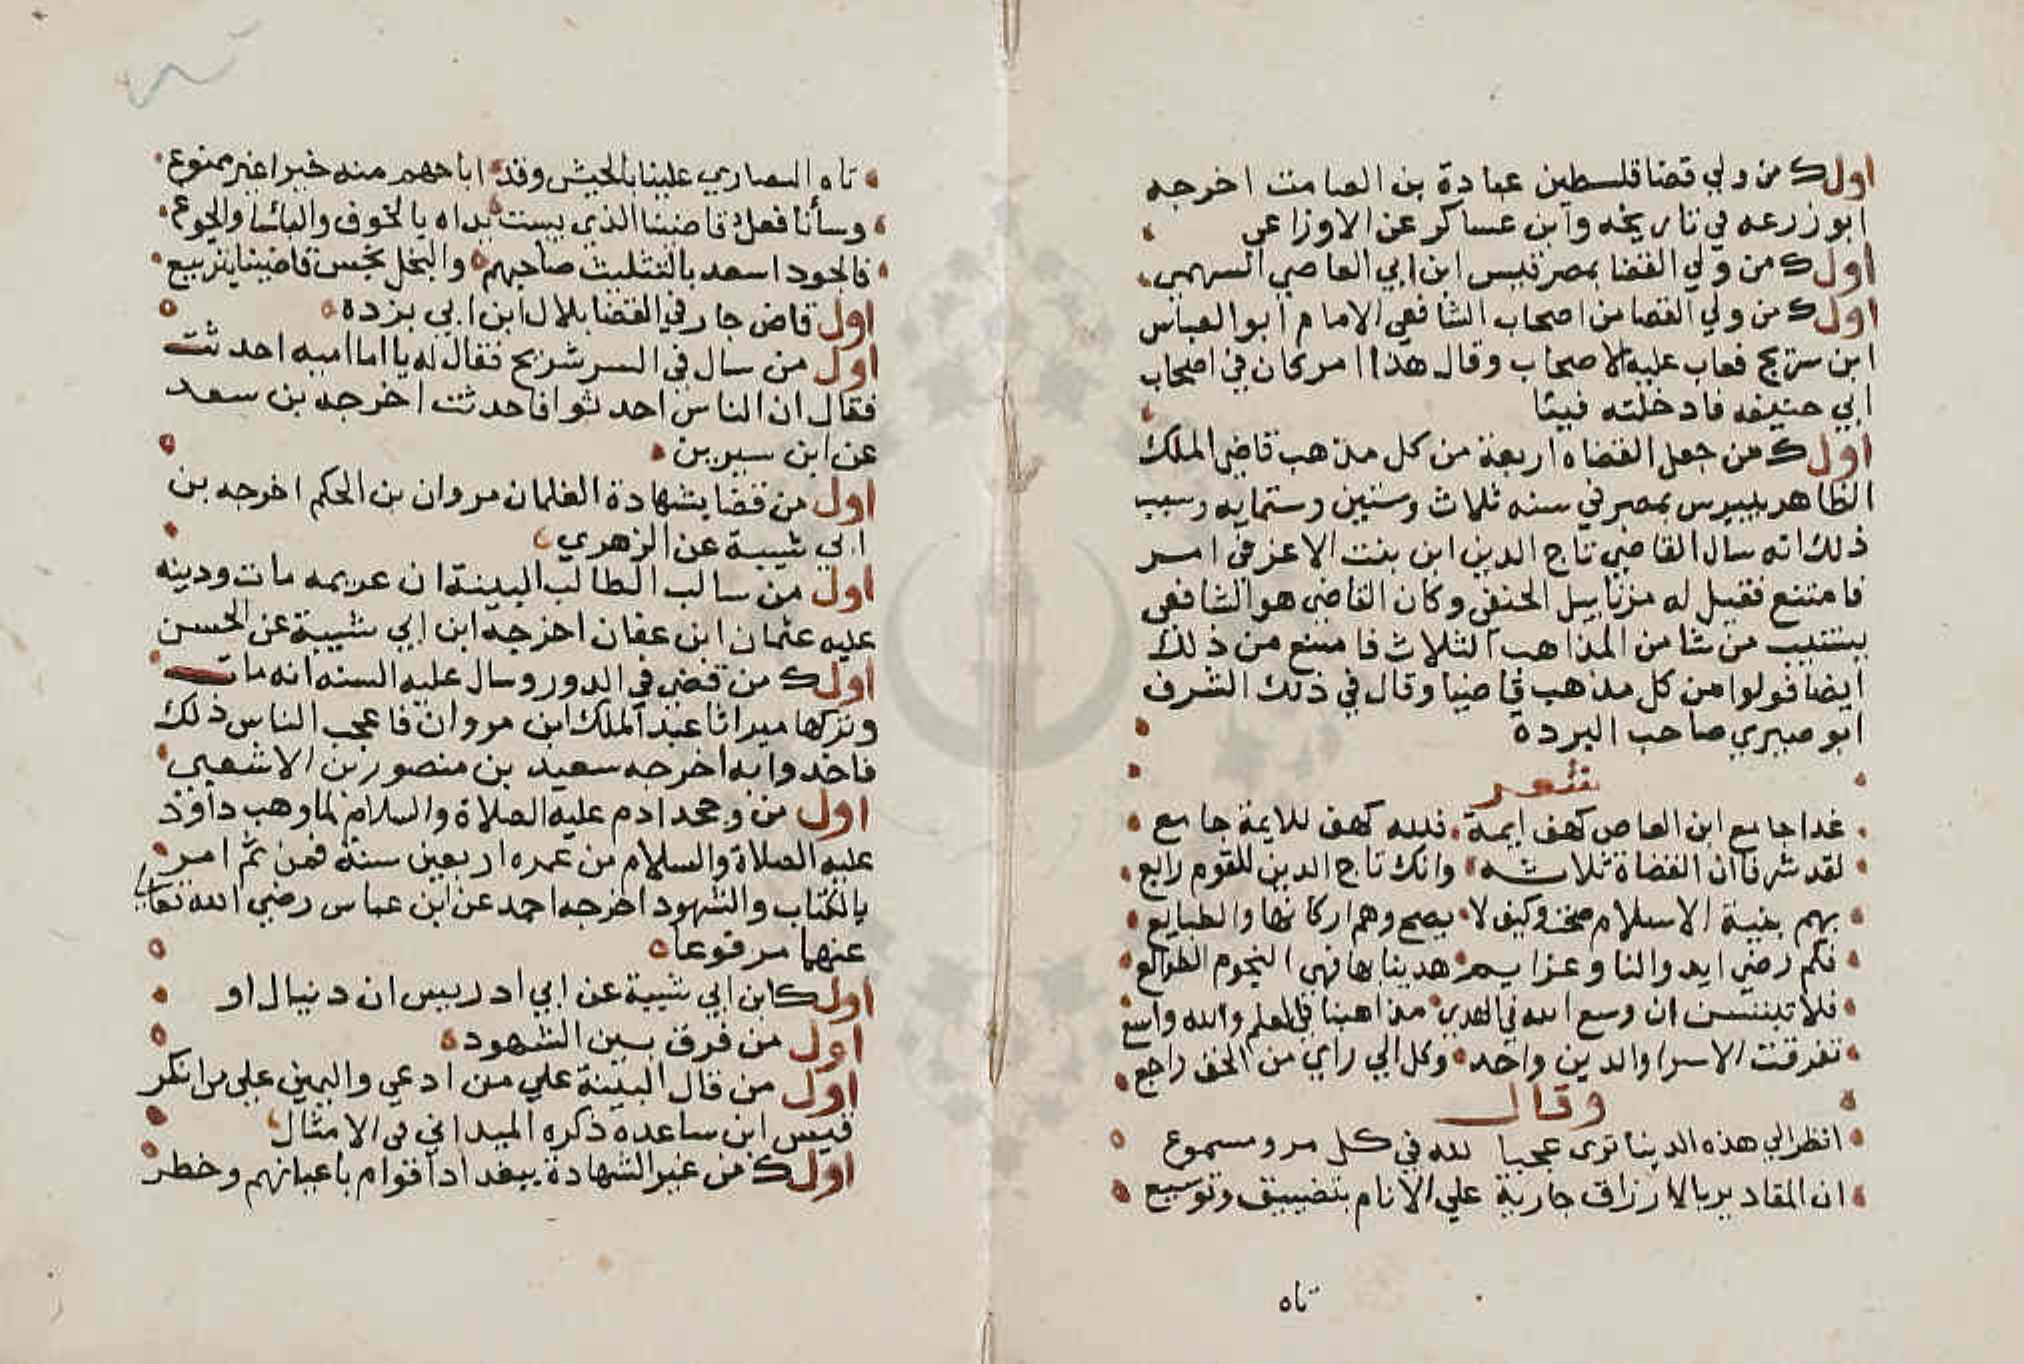 اول من ولي قضا فلسطين عبادة بن الصامت اخرجه
ابو زرعه في تاريخه وابن عساكر عن الاوزاعي
اول من ولي القضا بمصر قيس ابن ابي العاصي السهمي
اول من ولي القضا من اصحاب الشافعي الامام ابو العباس
ابن سريج فعاب عليه الاصحاب وقال هذا امر كان في اصحاب
ابي حنيفه فادخلته فينا
اول من جعل القضاه اربعة من كل مذهب قاضي الملك
الظاهر بيبرس بمصر في سنه ثلاث وستين وستمايه وسبب
ذلك انه سال القاضي تاج الدين ابن بنت الاعز في امر
فامتنع فقيل له مر نايبك الحنفي وكان القاضي هو الشافعي
يستنيب من شا من المذاهب الثلاث فامتنع من ذلك
ايضا فولوا من كل مذهب قاضيا وقال في ذلك الشرف
ابو صيري صاحب البردة
شعر
غدا جامع ابن العاص كهف ايمة فلله كهف للايمة جامع
لقد شرفا ان القضاة ثلاثه وانك تاج الدين للقوم رابع
بهم بنية الاسلام صحت وكيف لا يصح وهم اركانها والطبايع
فكم رضي ايد والنا وعزايم هدينا بها فهي النجوم الطوالع
فلا تيئسن ان وسع الله في الهدي مذاهبنا في العلم والله واسع
تفرقت الاسرا والدين واحد وكل الي راي من الحق راجع
وقال
انظر الي هذه الدنيا تري عجبا لله في كل مر ومسموع
ان المقادير بالارزاق جارية علي الانام بتضييق وتوسيع
تاه
تاه النصاري علينا بالحبش وقد اباحهم منه خبرا غير ممنوع
وسأنا فعل قاضينا الذي بست يداه بالخوف والباسا والجوع
فالجود اسعد بالتثليث صاحبهم والبخل نحس قاضينا بتربيع
اول قاض جار في القضا بلال ابن ابي بردة
اول من سال في السر شريح فقال له يا اما اميه احدثت
فقال ان الناس احدثوا فاحدثت اخرجه بن سعد
عن ابن سيرين
اول من قضا بشهادة الغلمان مروان بن الحكم اخرجه بن
ابي شيبة عن الزهري
اول من سالب الطالب البينة ان غريمه مات ودينه
عليه عثمان ابن عفان اخرجه ابن ابي شيبة عن الحسن
اول من قضي في الدور وسال عليه السنه انه مات
وتركها ميراثا عبد الملك ابن مروان فاعجب الناس ذلك
فاخدوا به اخرجه سعيد بن منصور بن الاشعبي
اول من وجحد ادم عليه الصلاة والسلام لما وهب داوود
عليه الصلاة والسلام من عمره اربعين سنة فمن ثم امر
بالكتاب والشهود اخرجه احمد عن ابن عباس رضي الله تعالي
عنهما مرفوعا
اول كابن ابي شيبة عن ابي ادريس ان دنيال او
اول من فرق بين الشهود
اول من قال البينة علي من ادعي واليمين علي من انكر
قيس ابن ساعده ذكره الميداني في الامثال
اول من غير الشهادة ببغداد اقوام باعيانهم وخطر